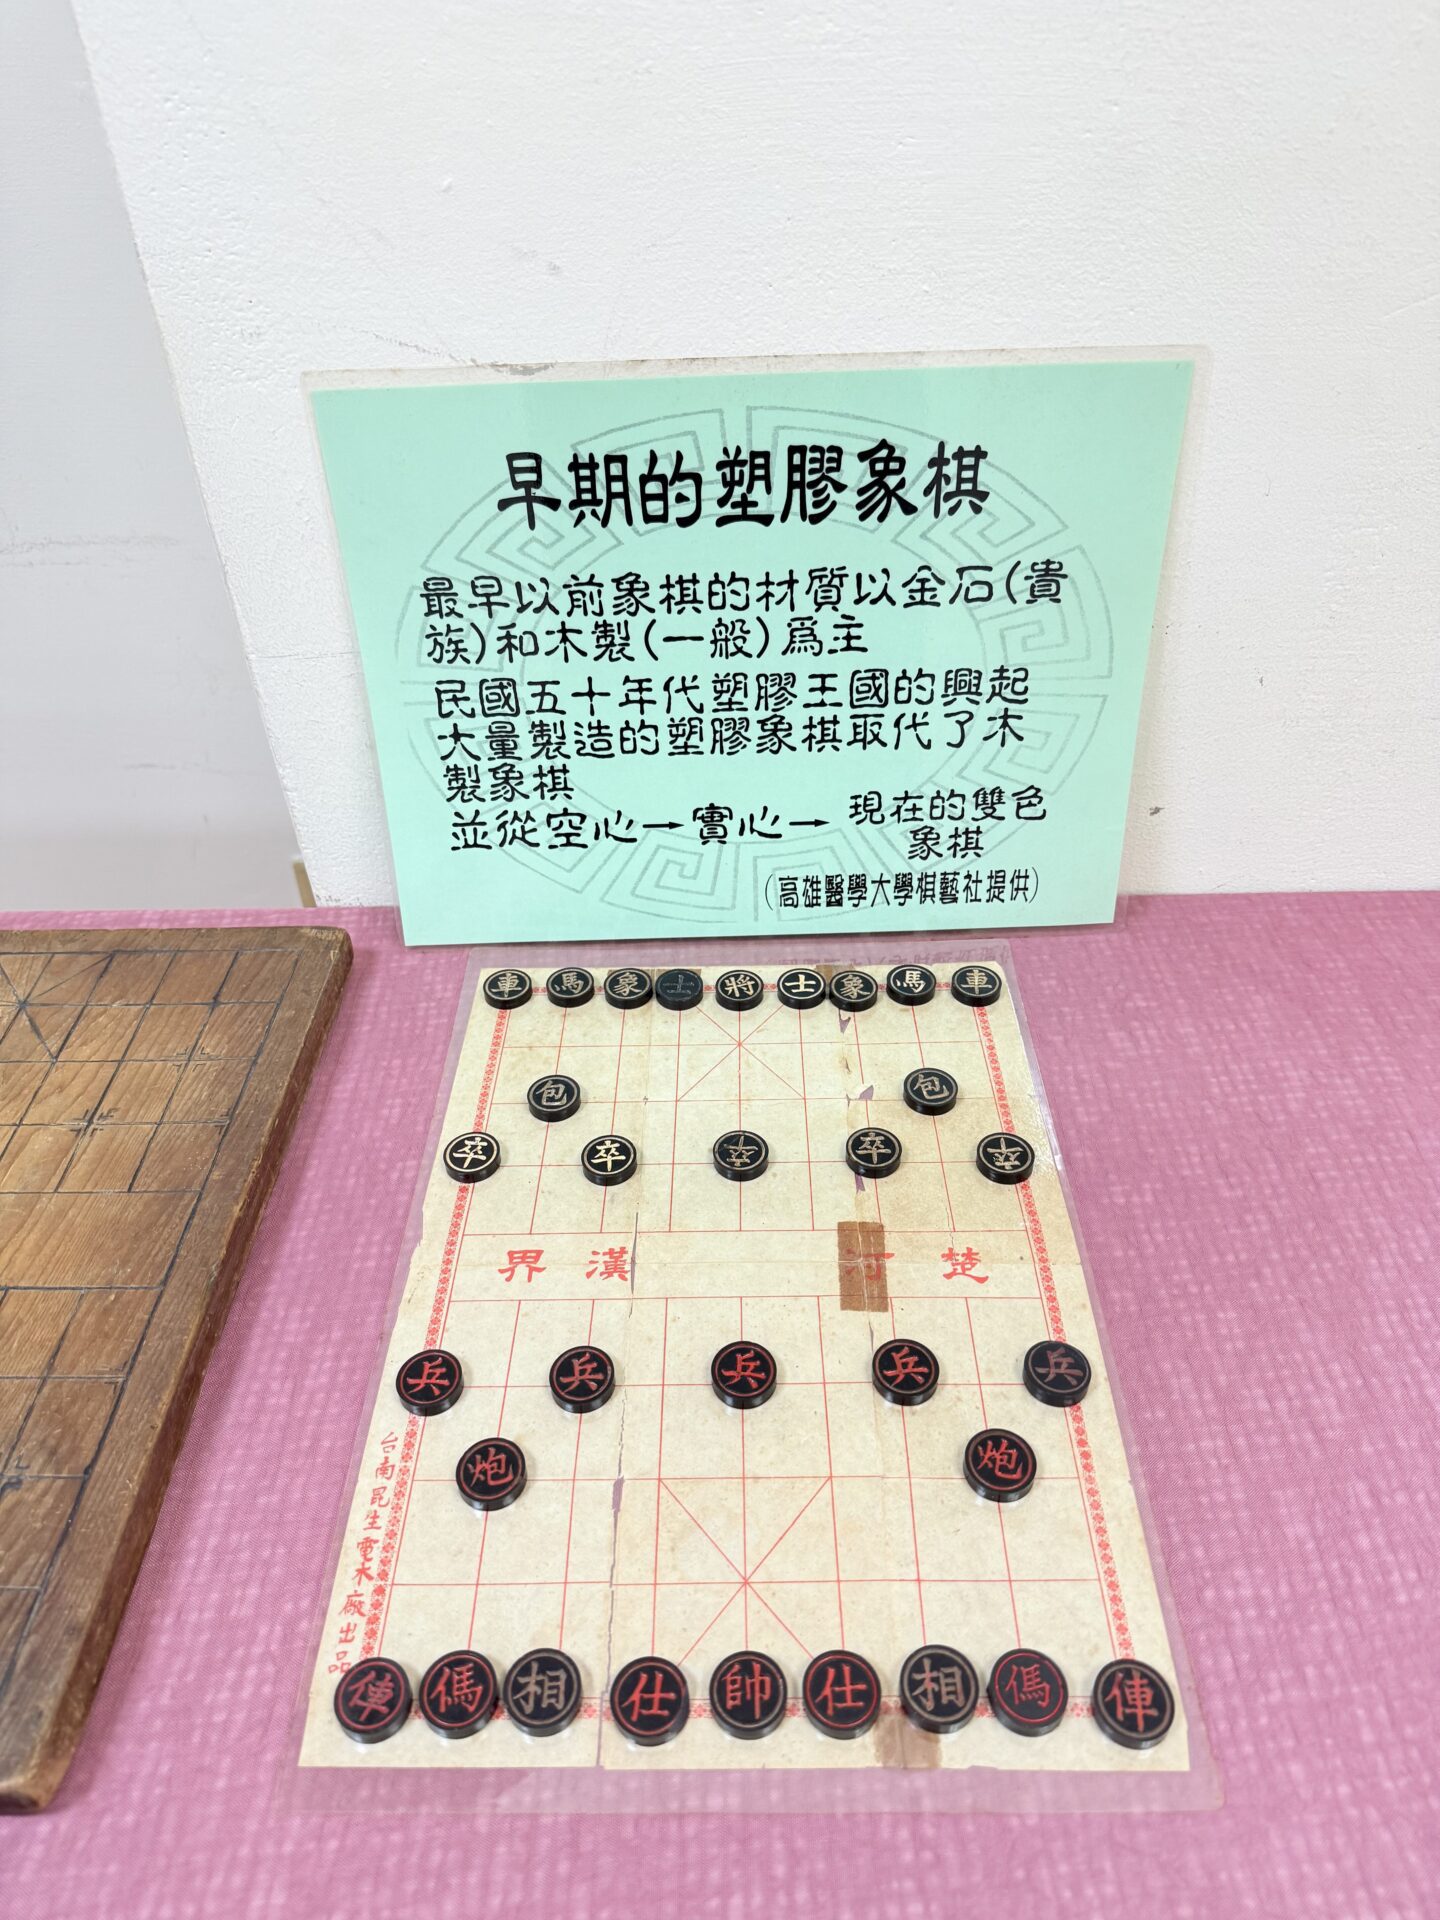 早期的塑膠象棋
最早以前象棋的材質以金石(貴
族)和木製(一般)爲主
民國五十年代塑膠王國的興起
大量製造的塑膠象棋取代了木
製象棋
並從空心→實心→現在的雙色
象棋
(高雄醫學大學棋藝社提供)
車馬象士將士象馬車
包包
卒卒卒卒卒
界漢河楚
兵兵兵兵兵
炮炮
俥傌相仕帥仕相傌俥
台南昆生電木廠出品